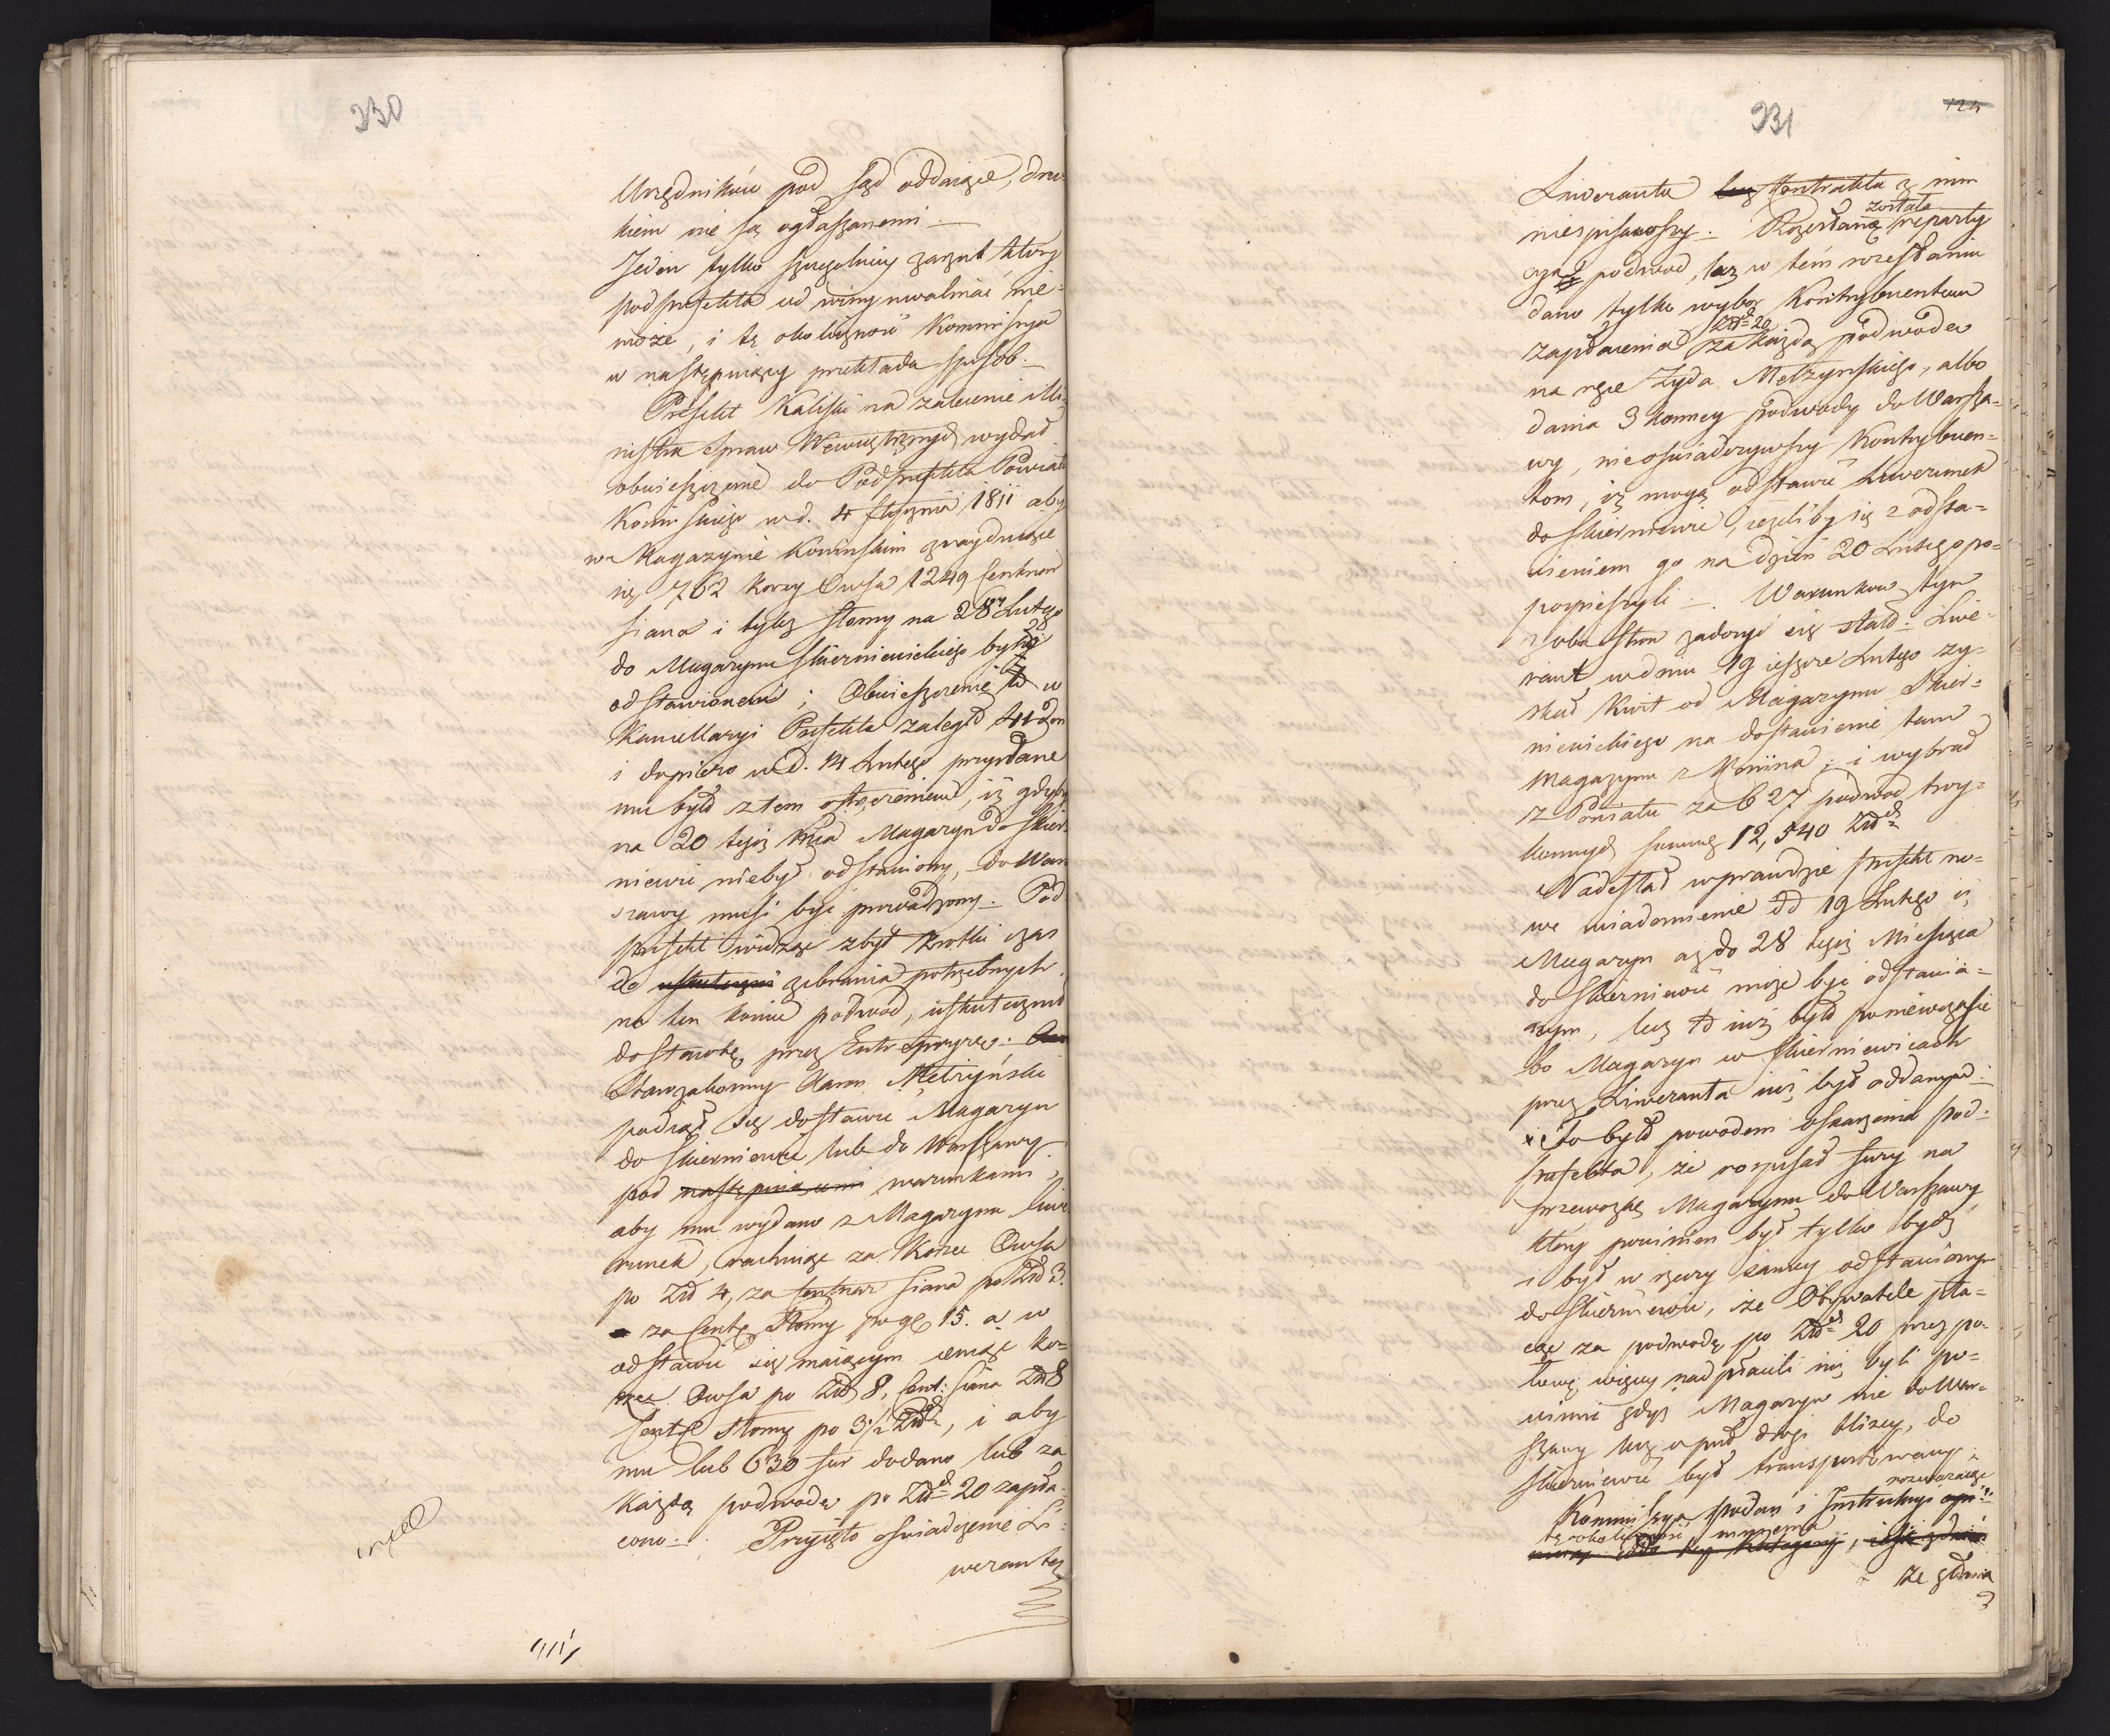 330
Urzędników pod sąd oddaiące, dru
kiem nie są ogłaszanemi.
Jeden tylko szczegolniey zarzut który
podprefekta od winy uwalniać nie
może, i tę okoliczność Kommissya
w następuiący przekłada sposób.
Prefekt Kaliski na zalecenie Mi
nistra Spraw Wewnętrznych wydał
obwieszczenie do Podprefekta Powiatu
Konińskiego w d. 4 stycznia 1811 aby
w Magazynie Konińskim znayduiące
się 762 korcy Owsa 1249 Centnar
siana i tyleż słomy na 28 Lutego
do Magazynu Skierniewickiego było
odstawionem; Obwieszczenie to w
Kancellaryi Prefekta zaległo 41 dni
i dopiero w d. 14 Lutego przysłane
mu było z tem ostrzeżeniem, iż gdyby
na 20 tegoż Mca Magazyn do Skier
niewic niebył odstawiony, do War
szawy musi być prowadzony. Pod
prefekt widząc zbyt krotki czas
do uskuteczni zebrania potrzebnych
na ten koniec podwod, uskutecznił
dostawę przez Entrepryzę:
Starozakonny Aaron Mełżyński
podiął się dostawić Magazyn
do Skierniewic lub do Warszawy
pod następuiącemi warunkami,
aby mu wydano z Magazynu liwe
runek, rachuiąc za Korzec Owsa
po Złł 4, za Centnar siana po Złł 3.
za Cent. Słomy po gr 15. a w
odstawić się maiącym cenąc ko=
rzec Owsa po Złł 8, Cent: siana Złł 8
Cent. Słomy po 3½ Złł, i aby
mu lub 630 fur dodano lub za
każdą podwodę po Złł 20 zapła
cono. Przyięto oświadczenie Li=
weranta
331
124
Liweranta lecz Kontraktu z nim
niespisawszy. Rozesłaną została reparty
cya podwod, lecz w tém rozesłaniu
dano tylko wybor Kontrybuentom
zapłacenia Złł 20 za każdą podwodę
na ręce Żyda Mełżynskiego, albo
dania 3 konney podwody do Warsza=
wy, nie oświadczywszy Kontrybuen=
tom, iż mogą odstawić Liwerunek
do Skierniewic, ieżeliby się z odsta=
wieniem go na dzień 20 Lutego po=
spieszyli. Warunkom tym
z obu stron zadosyć się stało. Liwe=
rant w dniu 19 ieszcze Lutego zy=
skał Kwit od Magazynu Skier=
niewickiego na dostawienie tam
magazynu z Konina; i wybrał
z Powiatu za 627 podwod troy=
konnych summę 12,540 Złł
Nadesłał wprawdzie prefekt no=
we uiadomienie dd 19 Lutego iż
Magazyn aż do 28 tegoż Miesiąca
do Skierniewic może być odstawio=
nym, lecz to iuż było poniewczasie
bo Magazyn w Skierniewicach
przez Liweranta iuż był oddanym.
To było powodem oskarżenia pod=
prefekta, że rozpisał fury na
przewozkę Magazynu do Warszawy
który powinien był tylko bydź
i był w rzeczy samey odstawiony
do Skierniewic, że Obywatele pła=
cąc za podwodę po Złł 20 przez po=
łowę więcey nadpłacili iuż byli po=
winni gdyż Magazyn nie do War=
szawy lecz o puł drogi bliżey, do
Skierniewic był transportowany.
Kommissya Podań i Instrukcyi rozważaiąc
tę okoliczność mniema
że główna